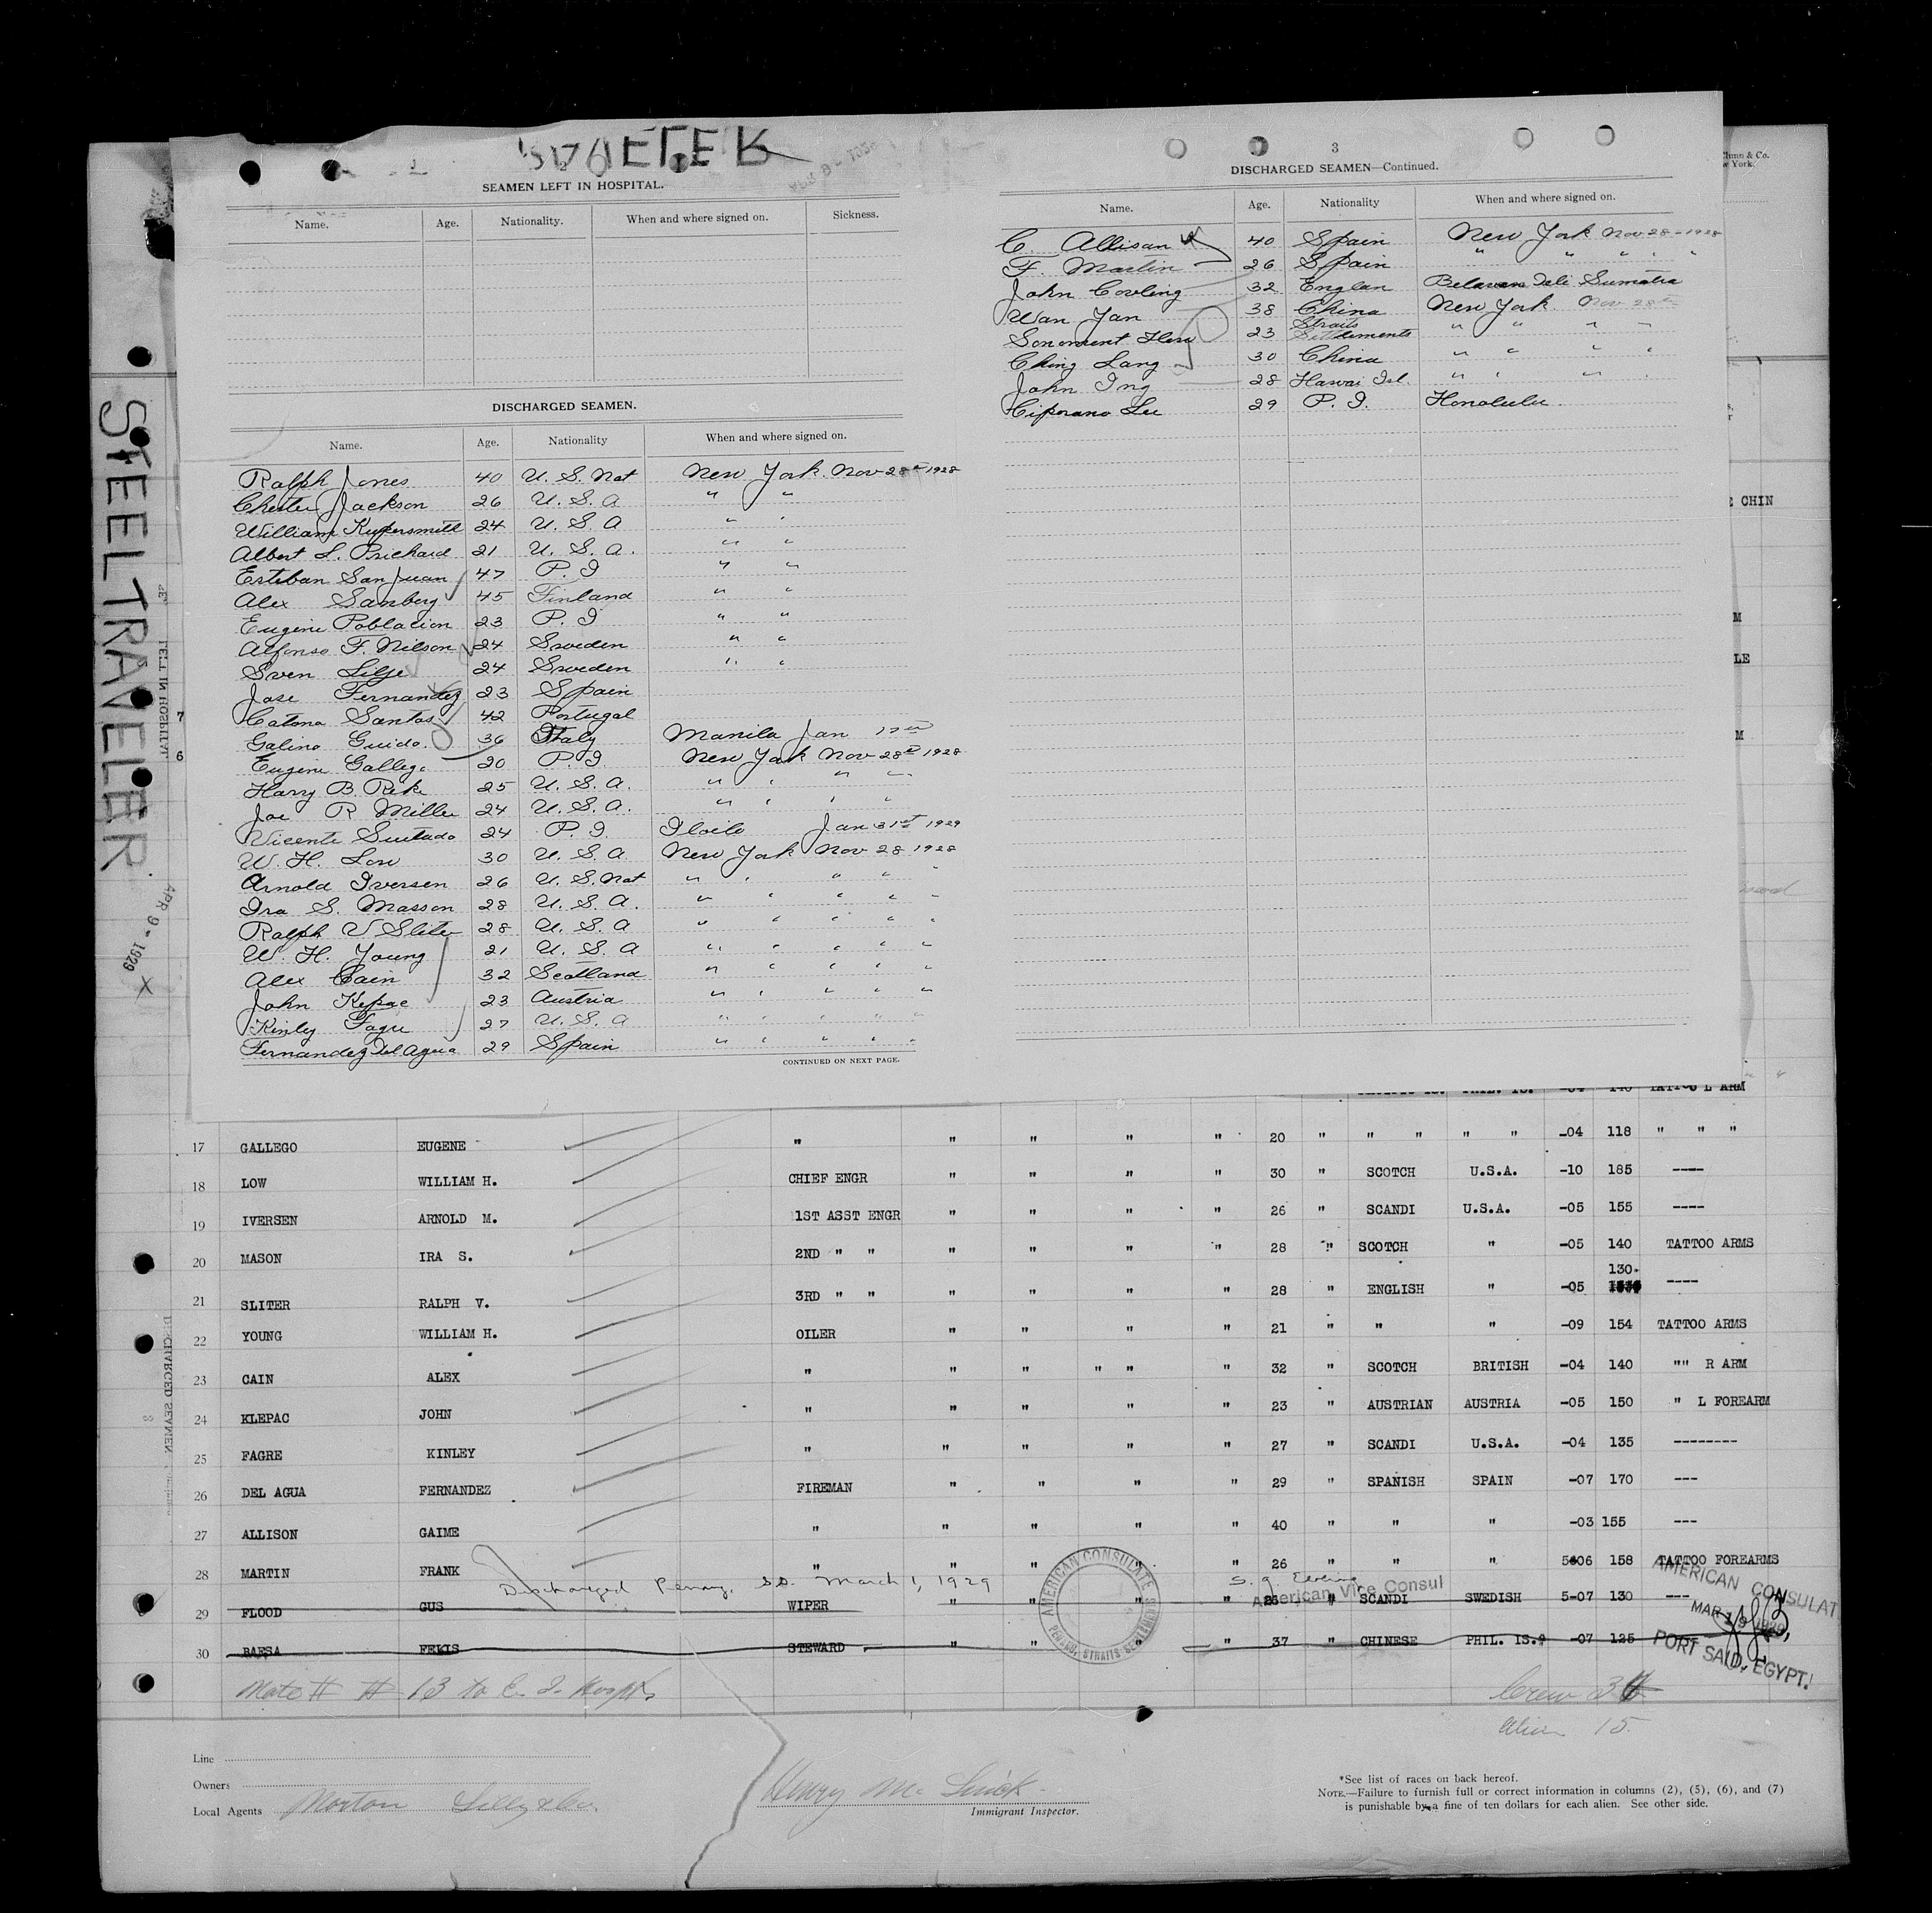 STEELTRAVELER
APR 9 - 1929
X
2
SEAMEN LEFT IN HOSPITAL.
Name. Age. Nationality. When and where signed on. Sickness.
DISCHARGED SEAMEN.
Name. Age. Nationality When and where signed on.
Ralph Jones 40 U. S. Nat New York Nov 28th 1928
Chester Jackson 26 U. S. A " "
William Kupersmitt 24 U. S. A " "
Albert L. Prichard 21 U. S. A. " "
Esteban San Juan 47 P. I " "
Alex Sanberg 45 Finland " "
Eugene Poblacion 23 P. I " "
Alfonso F. Nilson 24 Sweden " "
Sven Lilje 24 Sweden " "
Jose Fernandez 23 Spain
Catona Santos 42 Portugal
Galino Guido. 36 Italy Manila Jan 17th
Eugene Gallego 20 P. I. New York Nov 28th 1928
Harry B. Reke 25 U. S. A. " " " "
Joe R Miller 24 U. S. A. " " " "
Vicente Suitado 24 P. I. Iloilo Jan 31st 1929
W. H. Low 30 U. S. A New York Nov 28 1928
Arnold Iversen 26 U. S. Nat " " " " "
Ira S. Masson 28 U. S. A. " " " " "
Ralph V Sliter 28 U. S. A " " " " "
W. H. Young 21 U. S. A " " " " "
Alex Cain 32 Scotland " " " " "
John Kepac 23 Austria " " " " "
Kinley Fagre 27 U. S. A " " " " "
Fernandez Del Agua 29 Spain " " " " "
CONTINUED ON NEXT PAGE.
3
DISCHARGED SEAMEN—Continued.
Name. Age. Nationality When and where signed on.
C. Allisan 40 Spain New York Nov 28 - 1928
F. Martin 26 Spain " " " " "
John Cowling 32 Englan Belawan Deli Sumatra
Wan Yan 38 China New York Nov 28th
Sonoment Hen 23 Straits Settlements " " " "
Ching Lang 30 China " " " "
John Ing 28 Hawai Isl. " " " "
Ciporano Lee 29 P. I. Honolulu
17 GALLEGO EUGENE " " " " " 20 " " " " " -04 118 " " "
18 LOW WILLIAM H. CHIEF ENGR " " " " 30 " SCOTCH U.S.A. -10 185 ----
19 IVERSEN ARNOLD M. 1ST ASST ENGR " " " " 26 " SCANDI U.S.A. -05 155 ----
20 MASON IRA S. 2ND " " " " " " 28 " SCOTCH " -05 140 TATTOO ARMS
21 SLITER RALPH V. 3RD " " " " " " 28 " ENGLISH " -05 130 ----
22 YOUNG WILLIAM H. OILER " " " " 21 " " " -09 154 TATTOO ARMS
23 CAIN ALEX " " " " " " 32 " SCOTCH BRITISH -04 140 "" R ARM
24 KLEPAC JOHN " " " " " 23 " AUSTRIAN AUSTRIA -05 150 " L FOREARM
25 FAGRE KINLEY " " " " " 27 " SCANDI U.S.A. -04 135 --------
26 DEL AGUA FERNANDEZ FIREMAN " " " " 29 " SPANISH SPAIN -07 170 ---
27 ALLISON GAIME " " " " " 40 " " " -03 155 ---
28 MARTIN FRANK " " " " " 26 " " " 5606 158 TATTOO FOREARMS
Discharged Penang, S.S. March 1, 1929
American Vice Consul
AMERICAN CONSULATE
PENANG, STRAITS SETTLEMENTS
29 FLOOD GUS WIPER " " " " 25 " SCANDI SWEDISH 5-07 130 ---
30 BAESA FELIS STEWARD " " " " 37 " CHINESE PHIL. IS. -07 125
AMERICAN CONSULAT
MAR 19 1929
PORT SAID, EGYPT.
Crew 36
Alien 15
Line
Owners
Local Agents Norton Lilly & Co.
Immigrant Inspector.
*See list of races on back hereof.
NOTE.—Failure to furnish full or correct information in columns (2), (5), (6), and (7)
is punishable by a fine of ten dollars for each alien. See other side.